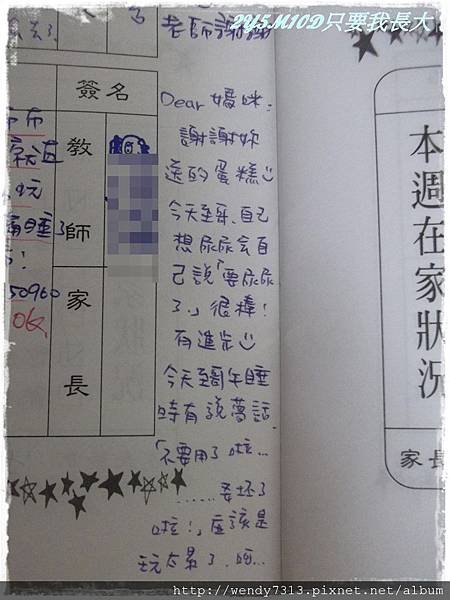 2Y5M10D只要我長大
老師謝謝
簽名
教師
家長
Dear 媽咪:
謝謝妳
送的蛋糕
今天至哥,自己
想尿尿會自
己說「要尿尿
了」很棒!
有進步
今天至哥午睡
時有說夢話
「不要用了啦...
......弄坏了
啦!」應該是
玩太累了,呵...
50960
本週在家狀況
家長
http://wendy7313.pixnet.net/album